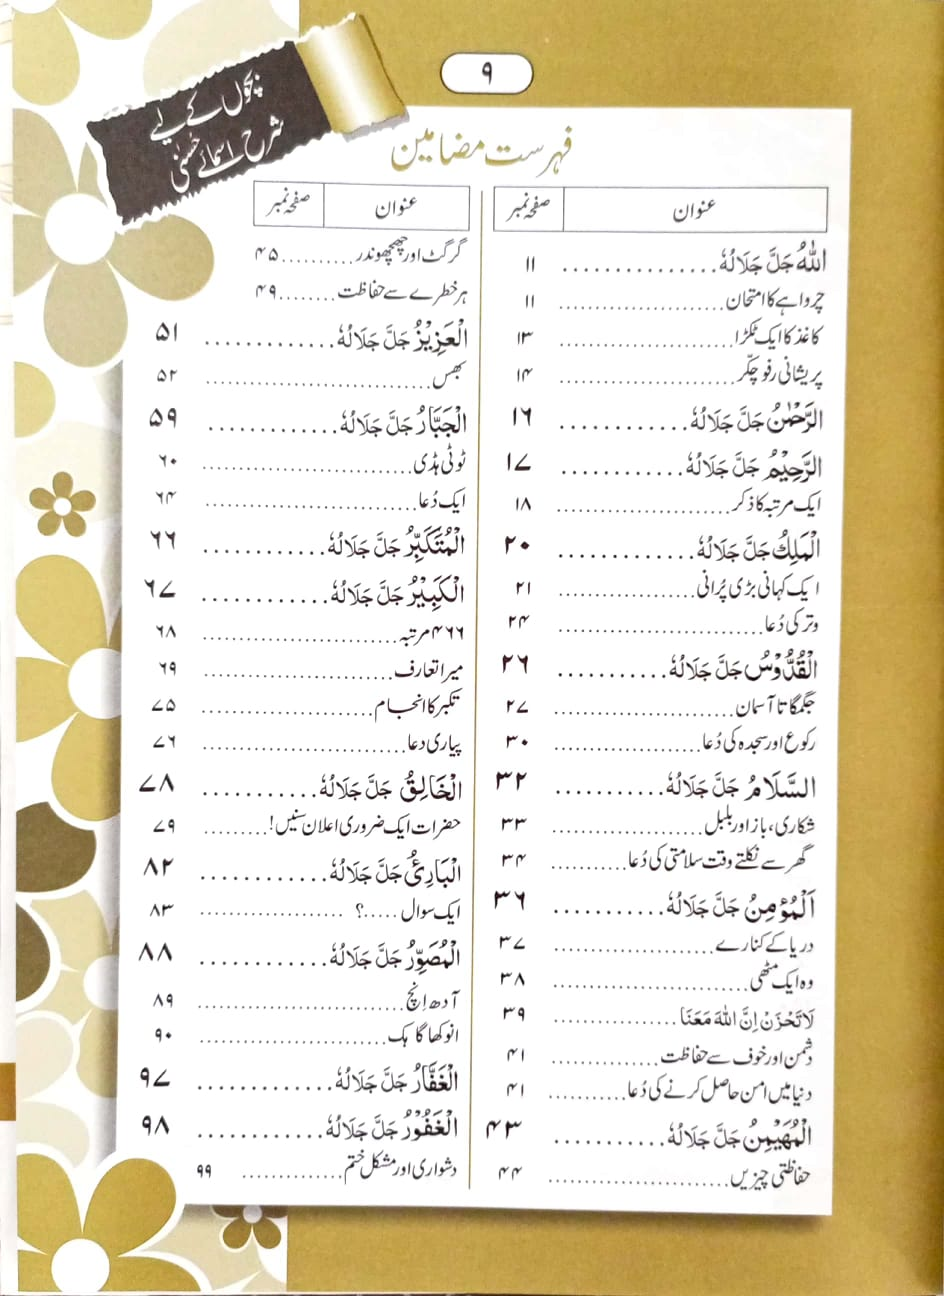 ۹
بچّوں کے لیے
شرح اسمائے حُسنیٰ
فہرست مضامین
عنوان صفحہ نمبر
اَللّٰهُ جَلَّ جَلَالُهٗ ............... ۱۱
چرواہے کا امتحان ............... ۱۱
کاغذ کا ایک ٹکڑا ............... ۱۳
پریشانی رفو چکّر ............... ۱۴
اَلرَّحْمٰنُ جَلَّ جَلَالُهٗ ............ ۱۶
اَلرَّحِيْمُ جَلَّ جَلَالُهٗ ............ ۱۷
ایک مرتبہ کا ذکر ............... ۱۸
اَلْمَلِكُ جَلَّ جَلَالُهٗ ............. ۲۰
ایک کہانی بڑی پُرانی ............... ۲۱
وتر کی دُعا ............... ۲۴
اَلْقُدُّوْسُ جَلَّ جَلَالُهٗ ........... ۲۶
جگمگاتا آسمان ............... ۲۷
رکوع اور سجدہ کی دُعا ............... ۳۰
اَلسَّلَامُ جَلَّ جَلَالُهٗ ........... ۳۲
شکاری، باز اور بلبل ............... ۳۳
گھر سے نکلتے وقت سلامتی کی دُعا ............ ۳۴
اَلْمُؤْمِنُ جَلَّ جَلَالُهٗ ........... ۳۶
دریا کے کنارے ............... ۳۷
وہ ایک مٹھی ............... ۳۸
لَا تَحْزَنْ اِنَّ اللّٰهَ مَعَنَا ............... ۳۹
دشمن اور خوف سے حفاظت ............... ۴۱
دنیا میں امن حاصل کرنے کی دُعا ............ ۴۱
اَلْمُهَيْمِنُ جَلَّ جَلَالُهٗ ........... ۴۳
حفاظتی چیزیں ............... ۴۴
عنوان صفحہ نمبر
گرگٹ اور چھچھوندر .......... ۴۵
ہر خطرے سے حفاظت ........ ۴۹
اَلْعَزِيْزُ جَلَّ جَلَالُهٗ ............. ۵۱
بھس ............... ۵۲
اَلْجَبَّارُ جَلَّ جَلَالُهٗ ............. ۵۹
ٹوٹی ہڈی ............... ۶۰
ایک دُعا ............... ۶۴
اَلْمُتَكَبِّرُ جَلَّ جَلَالُهٗ ............ ۶۶
اَلْكَبِيْرُ جَلَّ جَلَالُهٗ ............ ۶۷
۴۶۶ مرتبہ ............... ۶۸
میرا تعارف ............... ۶۹
تکبر کا انجام ............... ۷۵
پیاری دعا ............... ۷۶
اَلْخَالِقُ جَلَّ جَلَالُهٗ ........... ۷۸
حضرات ایک ضروری اعلان سنیں! ......... ۷۹
اَلْبَارِئُ جَلَّ جَلَالُهٗ ............ ۸۲
ایک سوال .....؟ ............... ۸۳
اَلْمُصَوِّرُ جَلَّ جَلَالُهٗ ............ ۸۸
آدھ اِنچ ............... ۸۹
انوکھا گاہک ............... ۹۰
اَلْغَفَّارُ جَلَّ جَلَالُهٗ ............. ۹۷
اَلْغَفُوْرُ جَلَّ جَلَالُهٗ ............ ۹۸
دشواری اور مشکل ختم ............... ۹۹